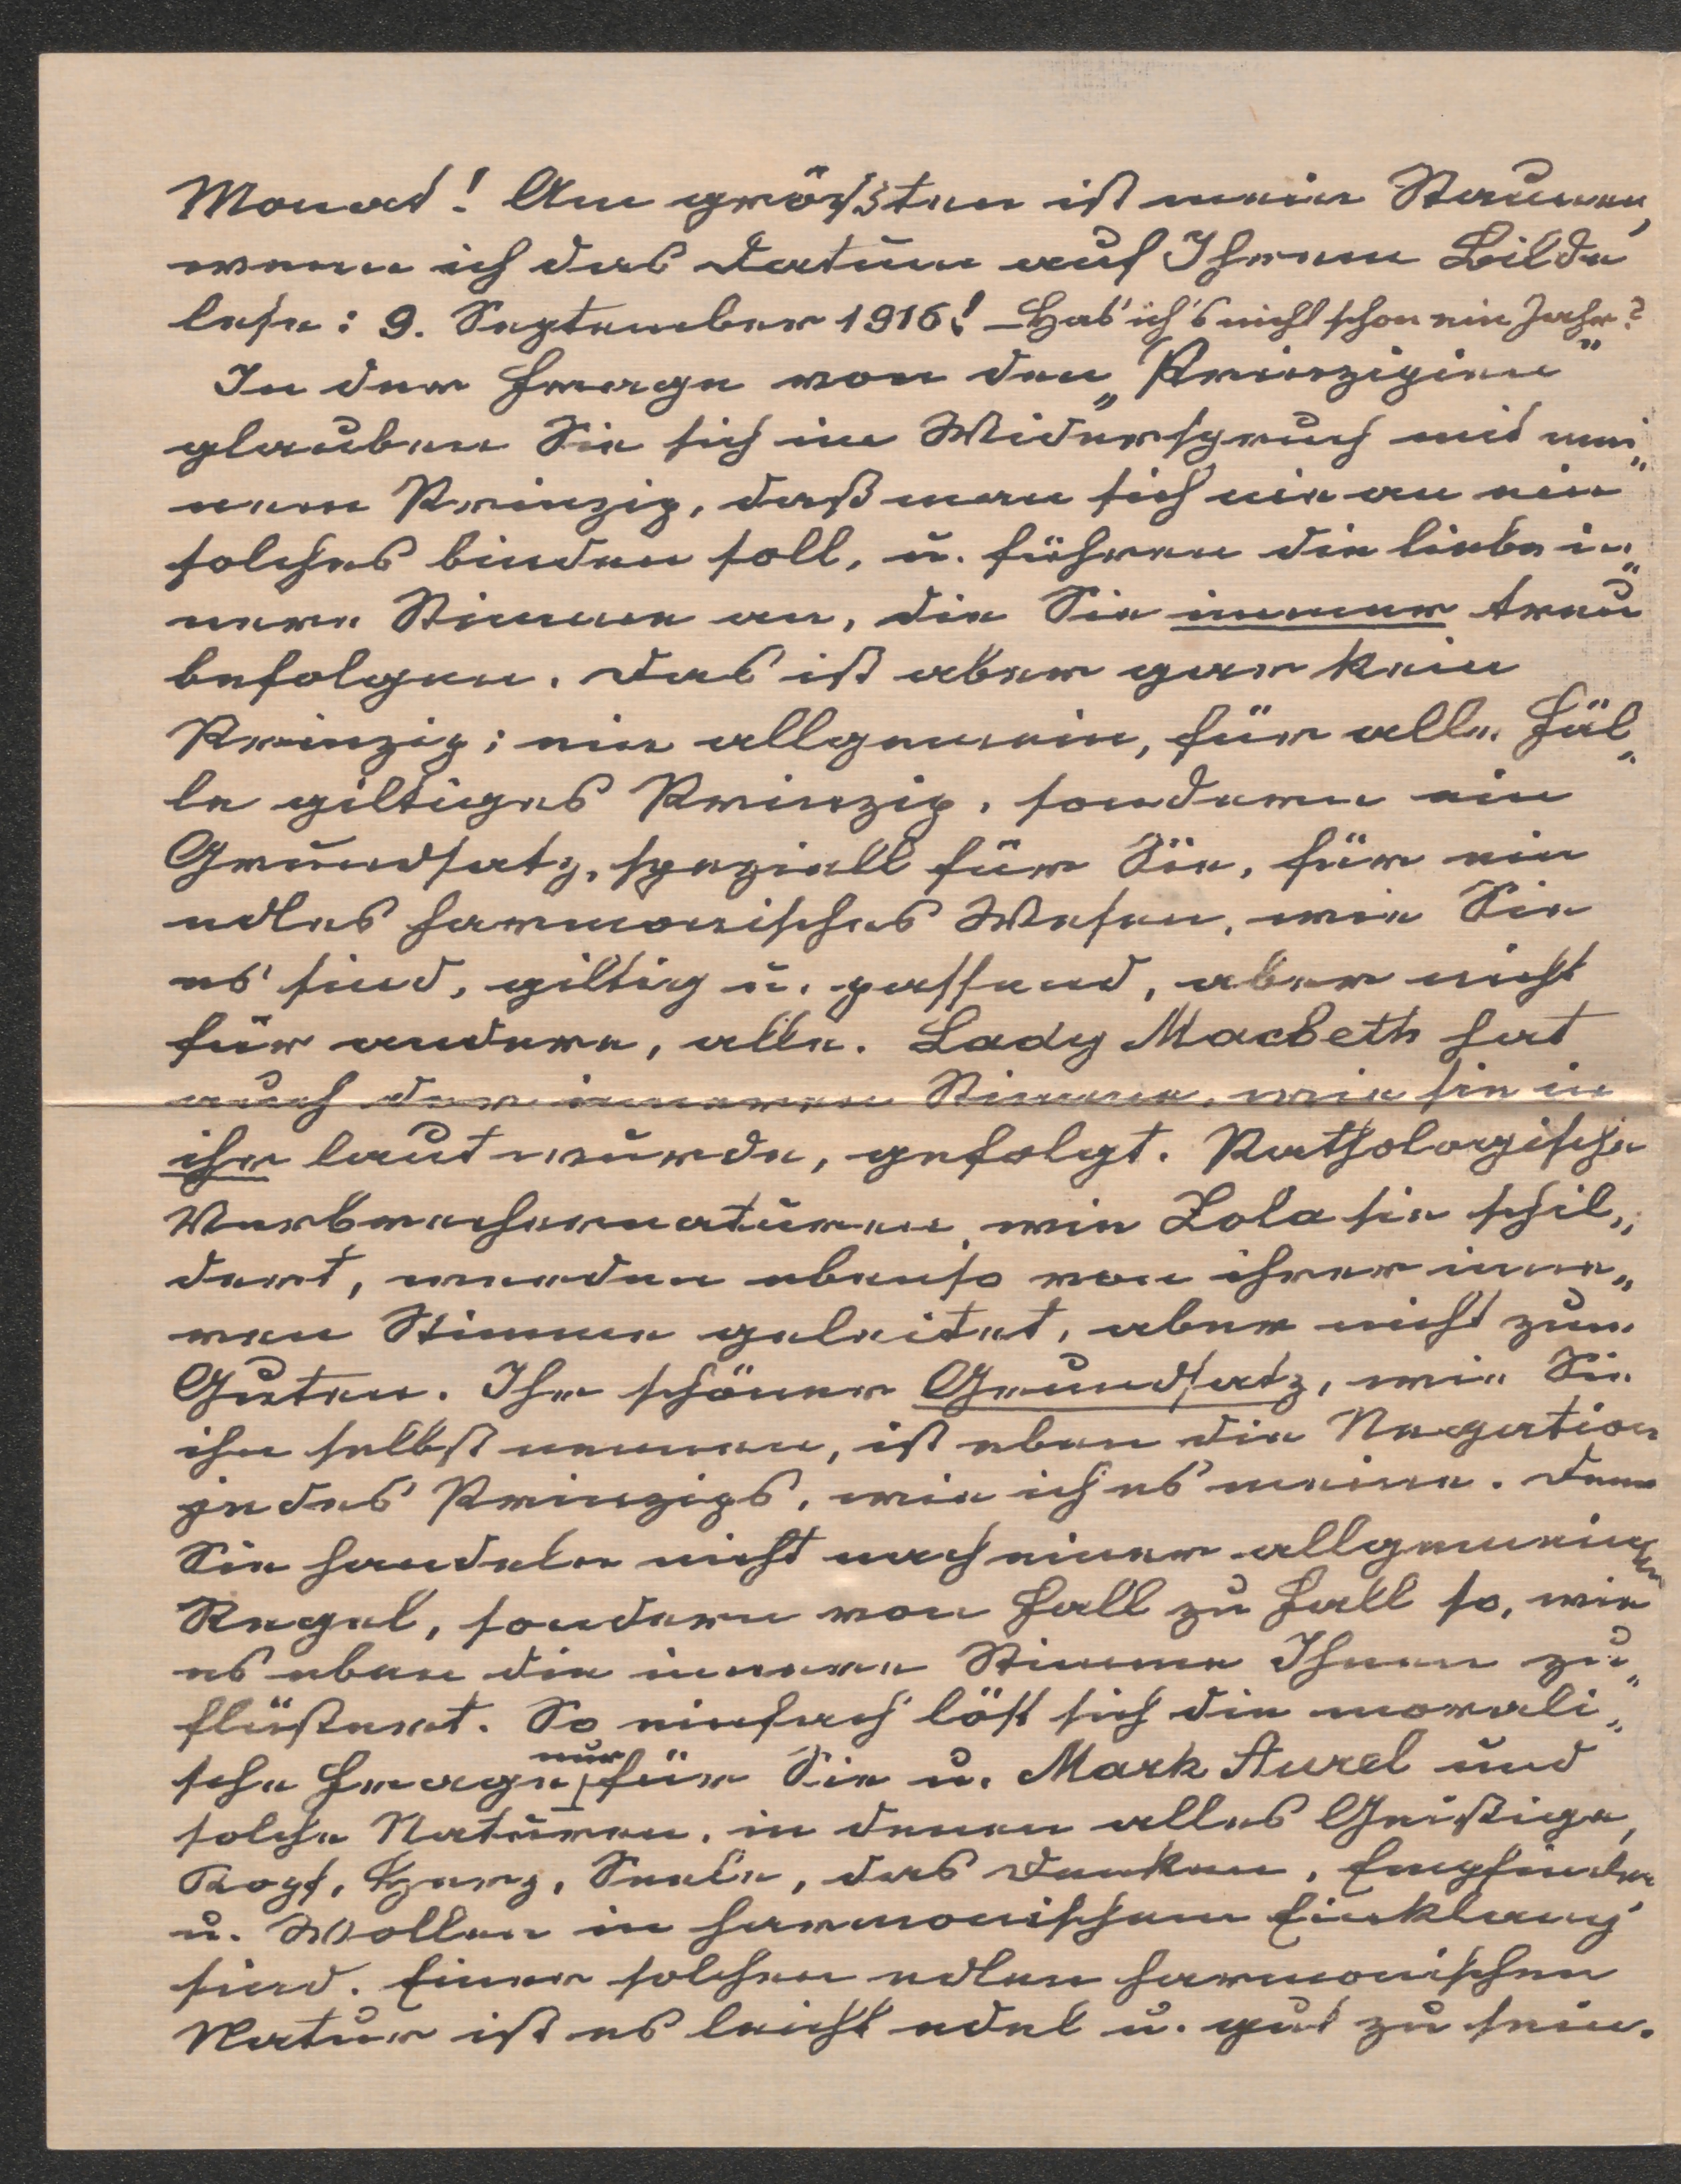 Monat! Am größten ist mein Staunen,
wenn ich das Datum auf Ihrem Bilde
lese: 9. September 1916! – Hab' ich's nicht schon ein Jahr?
In der Frage von den „Prinzipien"
glauben Sie sich im Widerspruch mit mei„
nem Prinzip, daß man sich nie an ein
solches binden soll, u. führen die liebe in„
nere Stimme an, die Sie immer treu
befolgen. Das ist aber gar kein
Prinzip; ein allgemein, für alle Fäl„
le giltiges Prinzip, sondern ein
Grundsatz, speziell für Sie, für ein
edles harmonisches Wesen, wie Sie
es sind, giltig u. passend, aber nicht
für andere, alle. Lady Macbeth hat
auch der inneren Stimme, wie sie in
ihr laut wurde, gefolgt. Pathologische
Verbrechernaturen, wie Zola sie schil„
dert, werden ebenso von ihrer inne„
ren Stimme geleitet, aber nicht zum
Guten. Ihr schöner Grundsatz, wie Sie
ihn selbst nennen, ist eben die Negation
jedes Prinzips, wie ich es meine. Denn
Sie handeln nicht nach einer allgemeinen
Regel, sondern von Fall zu Fall so, wie
es eben die innere Stimme Ihnen zu„
flüstert. So einfach löst sich die morali„
sche Frage nur für Sie u. Mark Aurel und
solche Naturen, in denen alles Geistige,
Kopf, Herz, Seele, das Denken, Empfinden
u. Wollen in harmonischem Einklang
sind. Einer solchen edlen harmonischen
Natur ist es leicht edel u. gut zu sein.